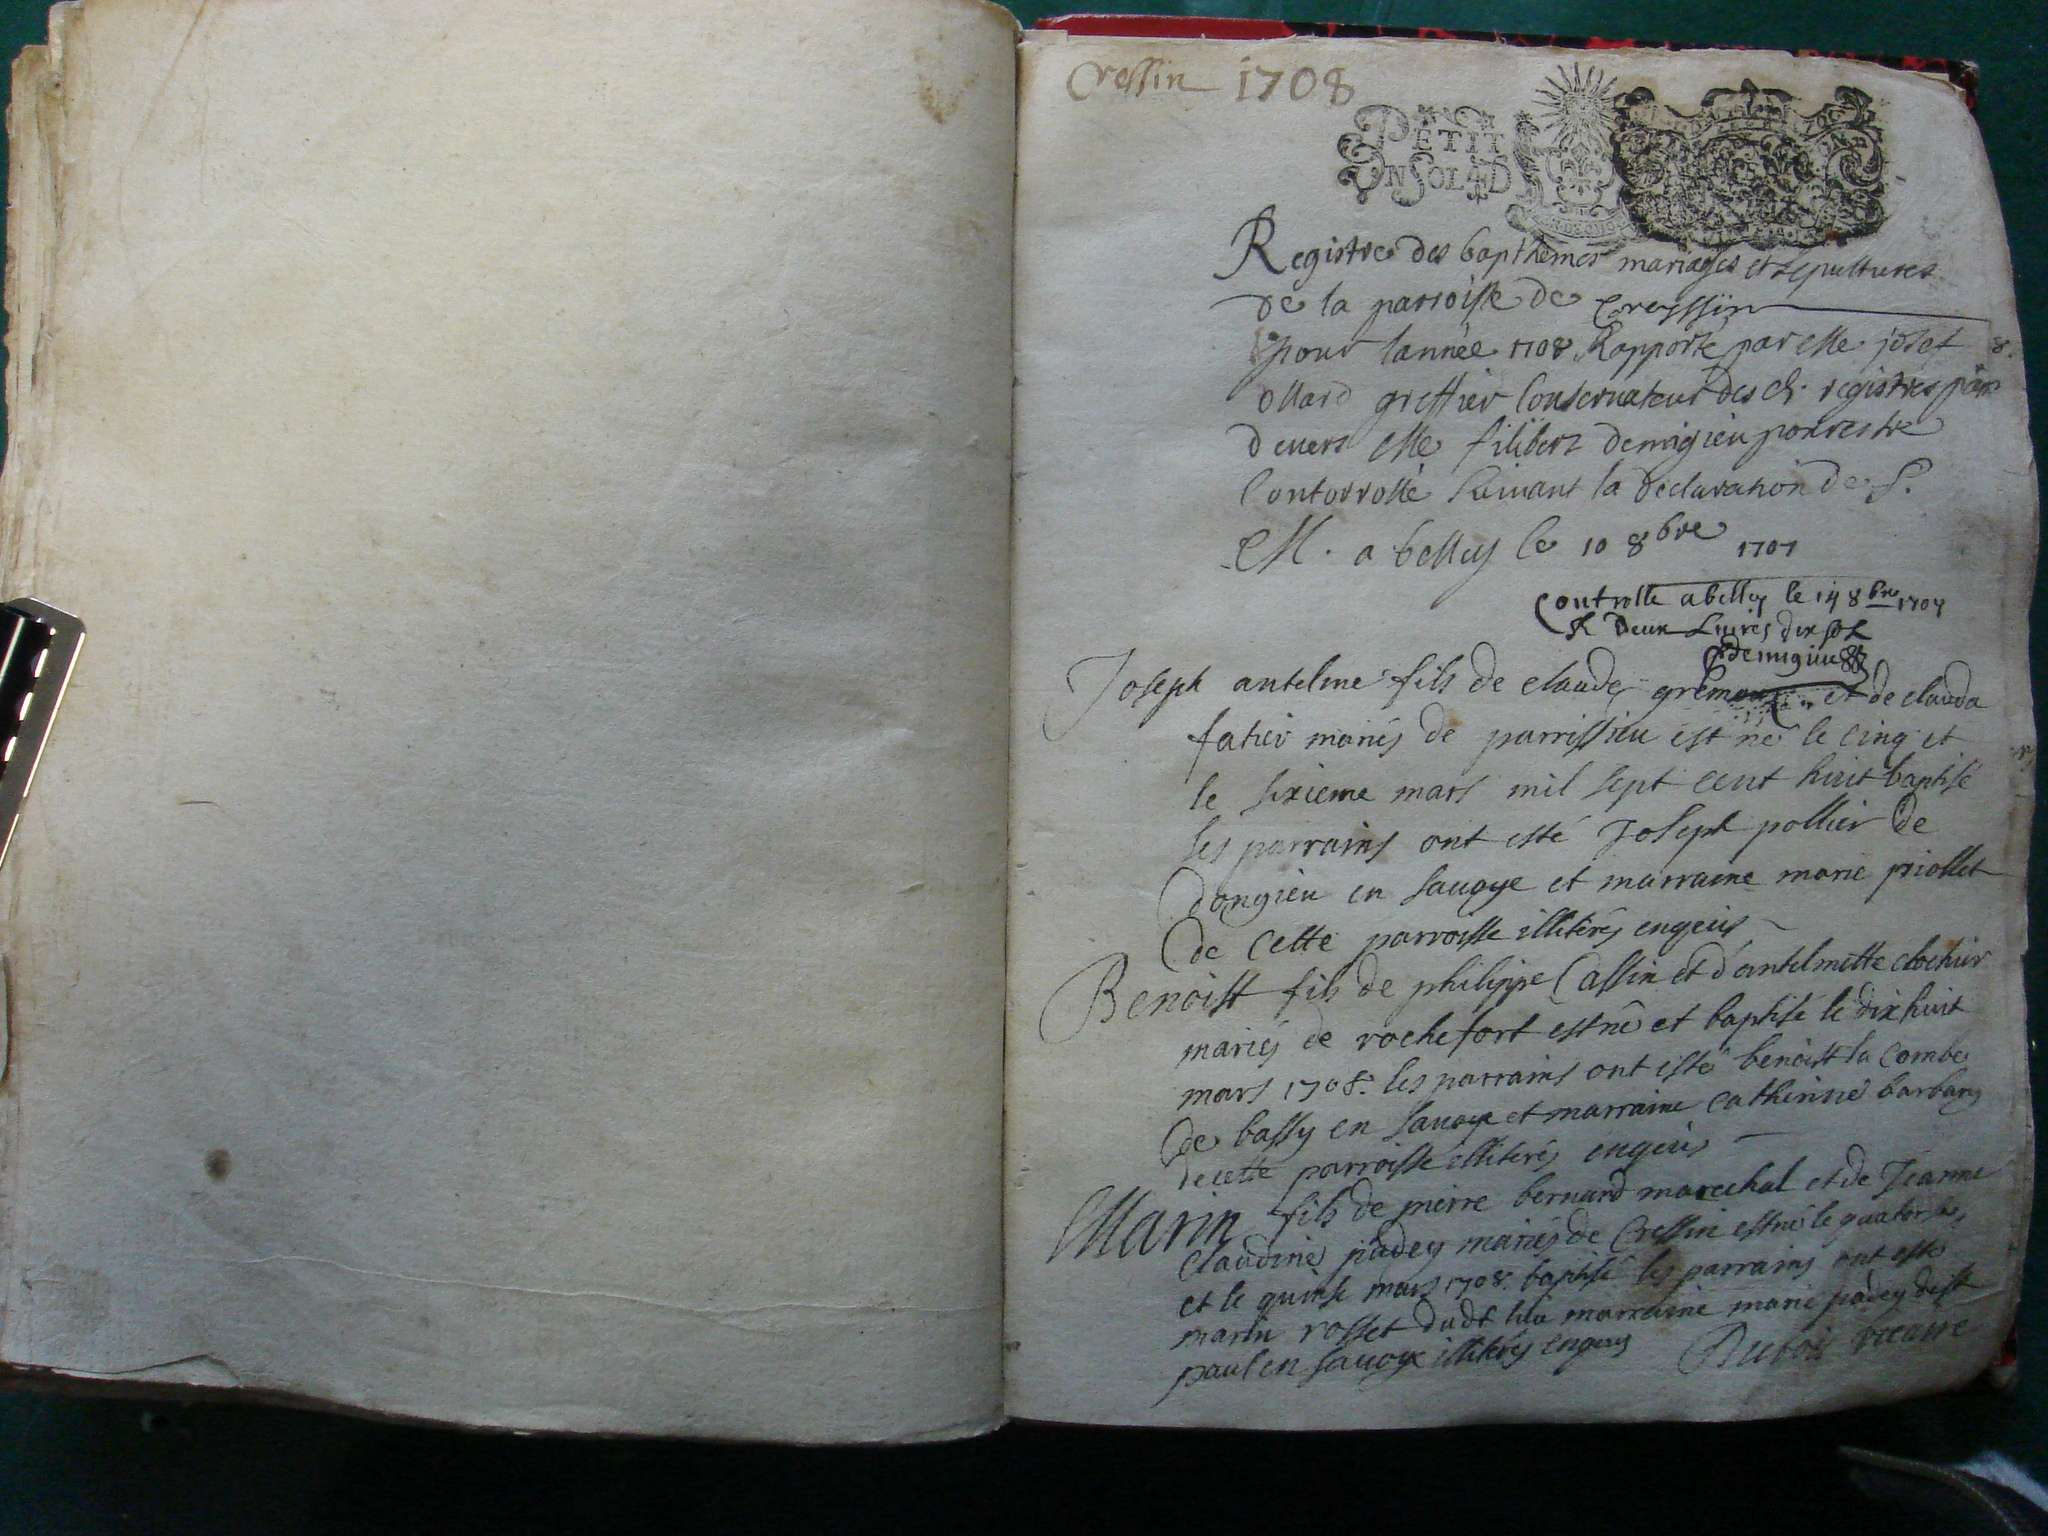 Cressin 1708
PETIT
UN SOL 4 D
Registre des bapthemes mariages et sepultures
de la parroisse de Creyssin
pour lannée 1708 Rapporté par Me josef
ollard greffier Conservateur des d. registres
devers Me filibert demigieu pour estre
Contorrollé suivant la declaration de S.
M. a belley le 10 8bre 1707
Controlle a belley le 14 8bre 1707
R deux Livres dix sols
demigieu
Joseph antelme fils de claude et de clauda
fatier mariés de parrissieu est né le cinq et
le sixieme mars mil sept cent huit baptisé
les parrains ont esté Joseph pollier de
dongieu en savoye et marraine marie priollet
de cette parroisse illiterés enquis
Benoist fils de philippe Cassin et d'antelmette clochier
mariés de rochefort est né et baptisé le dix huit
mars 1708. les parrains ont esté benoist la combe
de bassy en savoye et marraine catherine barbary
de cette parroisse illiterés enquis
Marin fils de pierre bernard marechal et de Jeanne
claudine padey mariés de Cressin est né le quatorse
et le quinse mars 1708. baptisé les parrains ont esté
marin rosset dudt lieu marraine marie padey de st
paul en savoye illiterés enquis Dubois vicaire